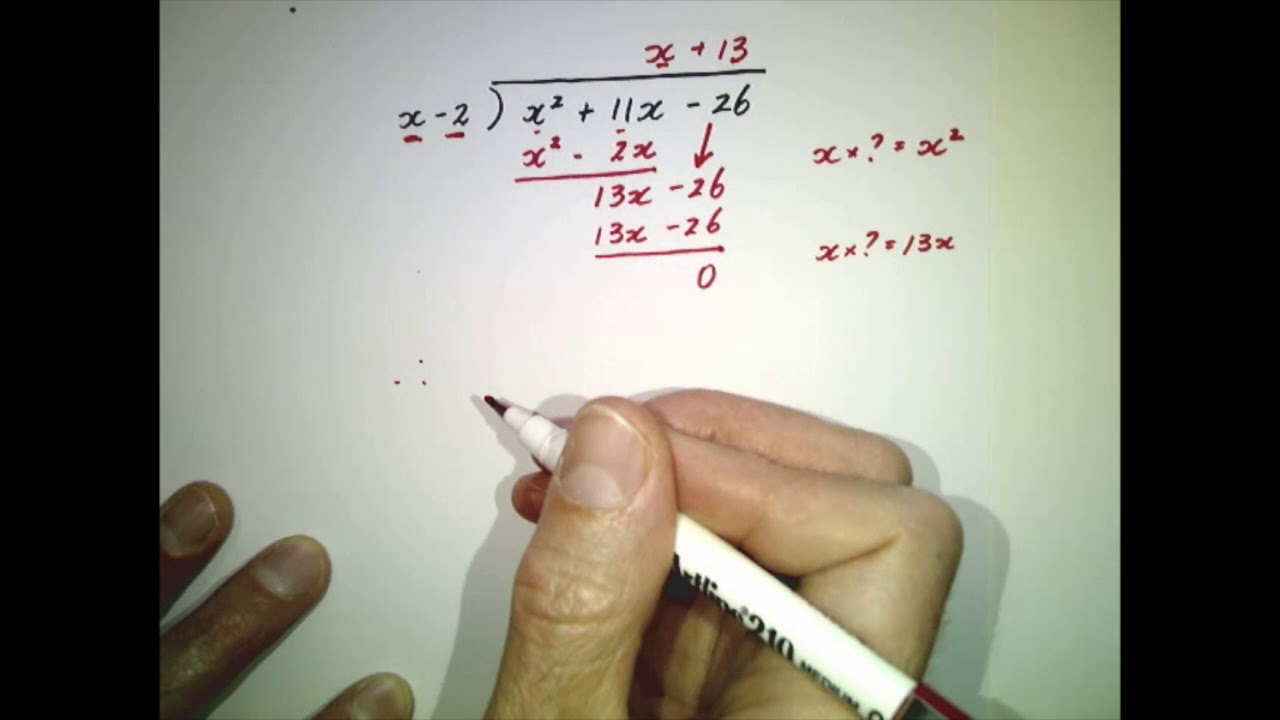 x + 13
x - 2 ) x² + 11x - 26
x² - 2x ↓
13x - 26
13x - 26
0
x × ? = x²
x × ? = 13x
∴
Artline 210
MEDIUM